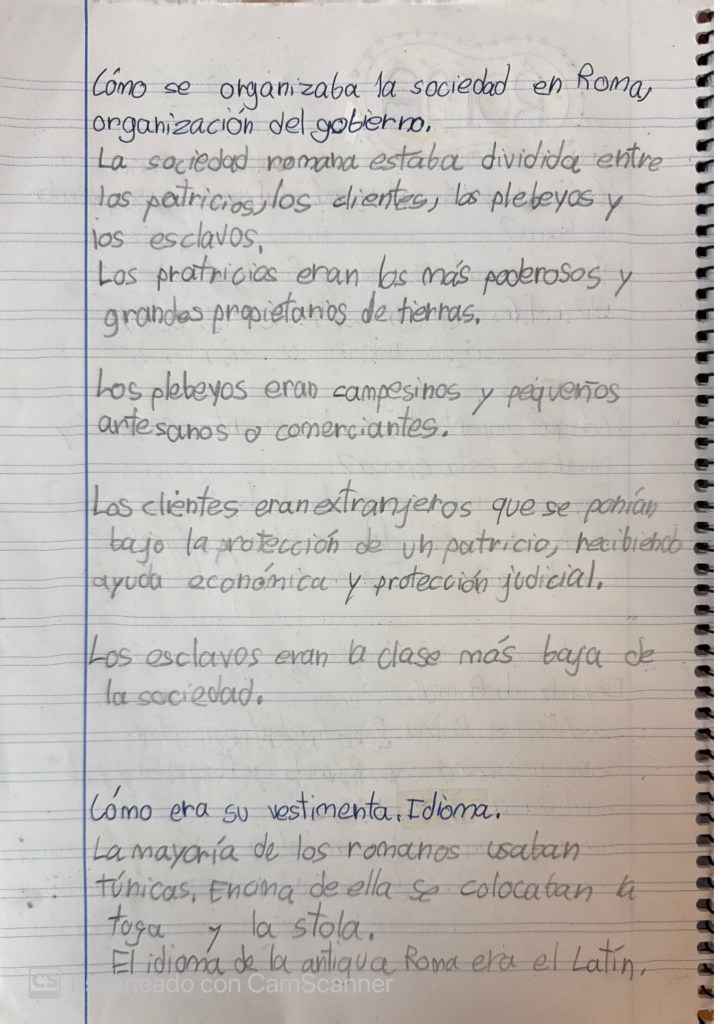 Cómo se organizaba la sociedad en Roma,
organización del gobierno.
La sociedad romana estaba dividida entre
los patricios, los clientes, los plebeyos y
los esclavos.
Los pratricios eran los más poderosos y
grandes propietarios de tierras.
Los plebeyos eran campesinos y pequeños
artesanos o comerciantes.
Los clientes eran extranjeros que se ponían
bajo la protección de un patricio, recibiendo
ayuda económica y protección judicial.
Los esclavos eran la clase más baja de
la sociedad.
Cómo era su vestimenta. Idioma.
La mayoría de los romanos usaban
túnicas. Encima de ella se colocaban la
toga y la stola.
El idioma de la antigua Roma era el Latín.
CS Escaneado con CamScanner